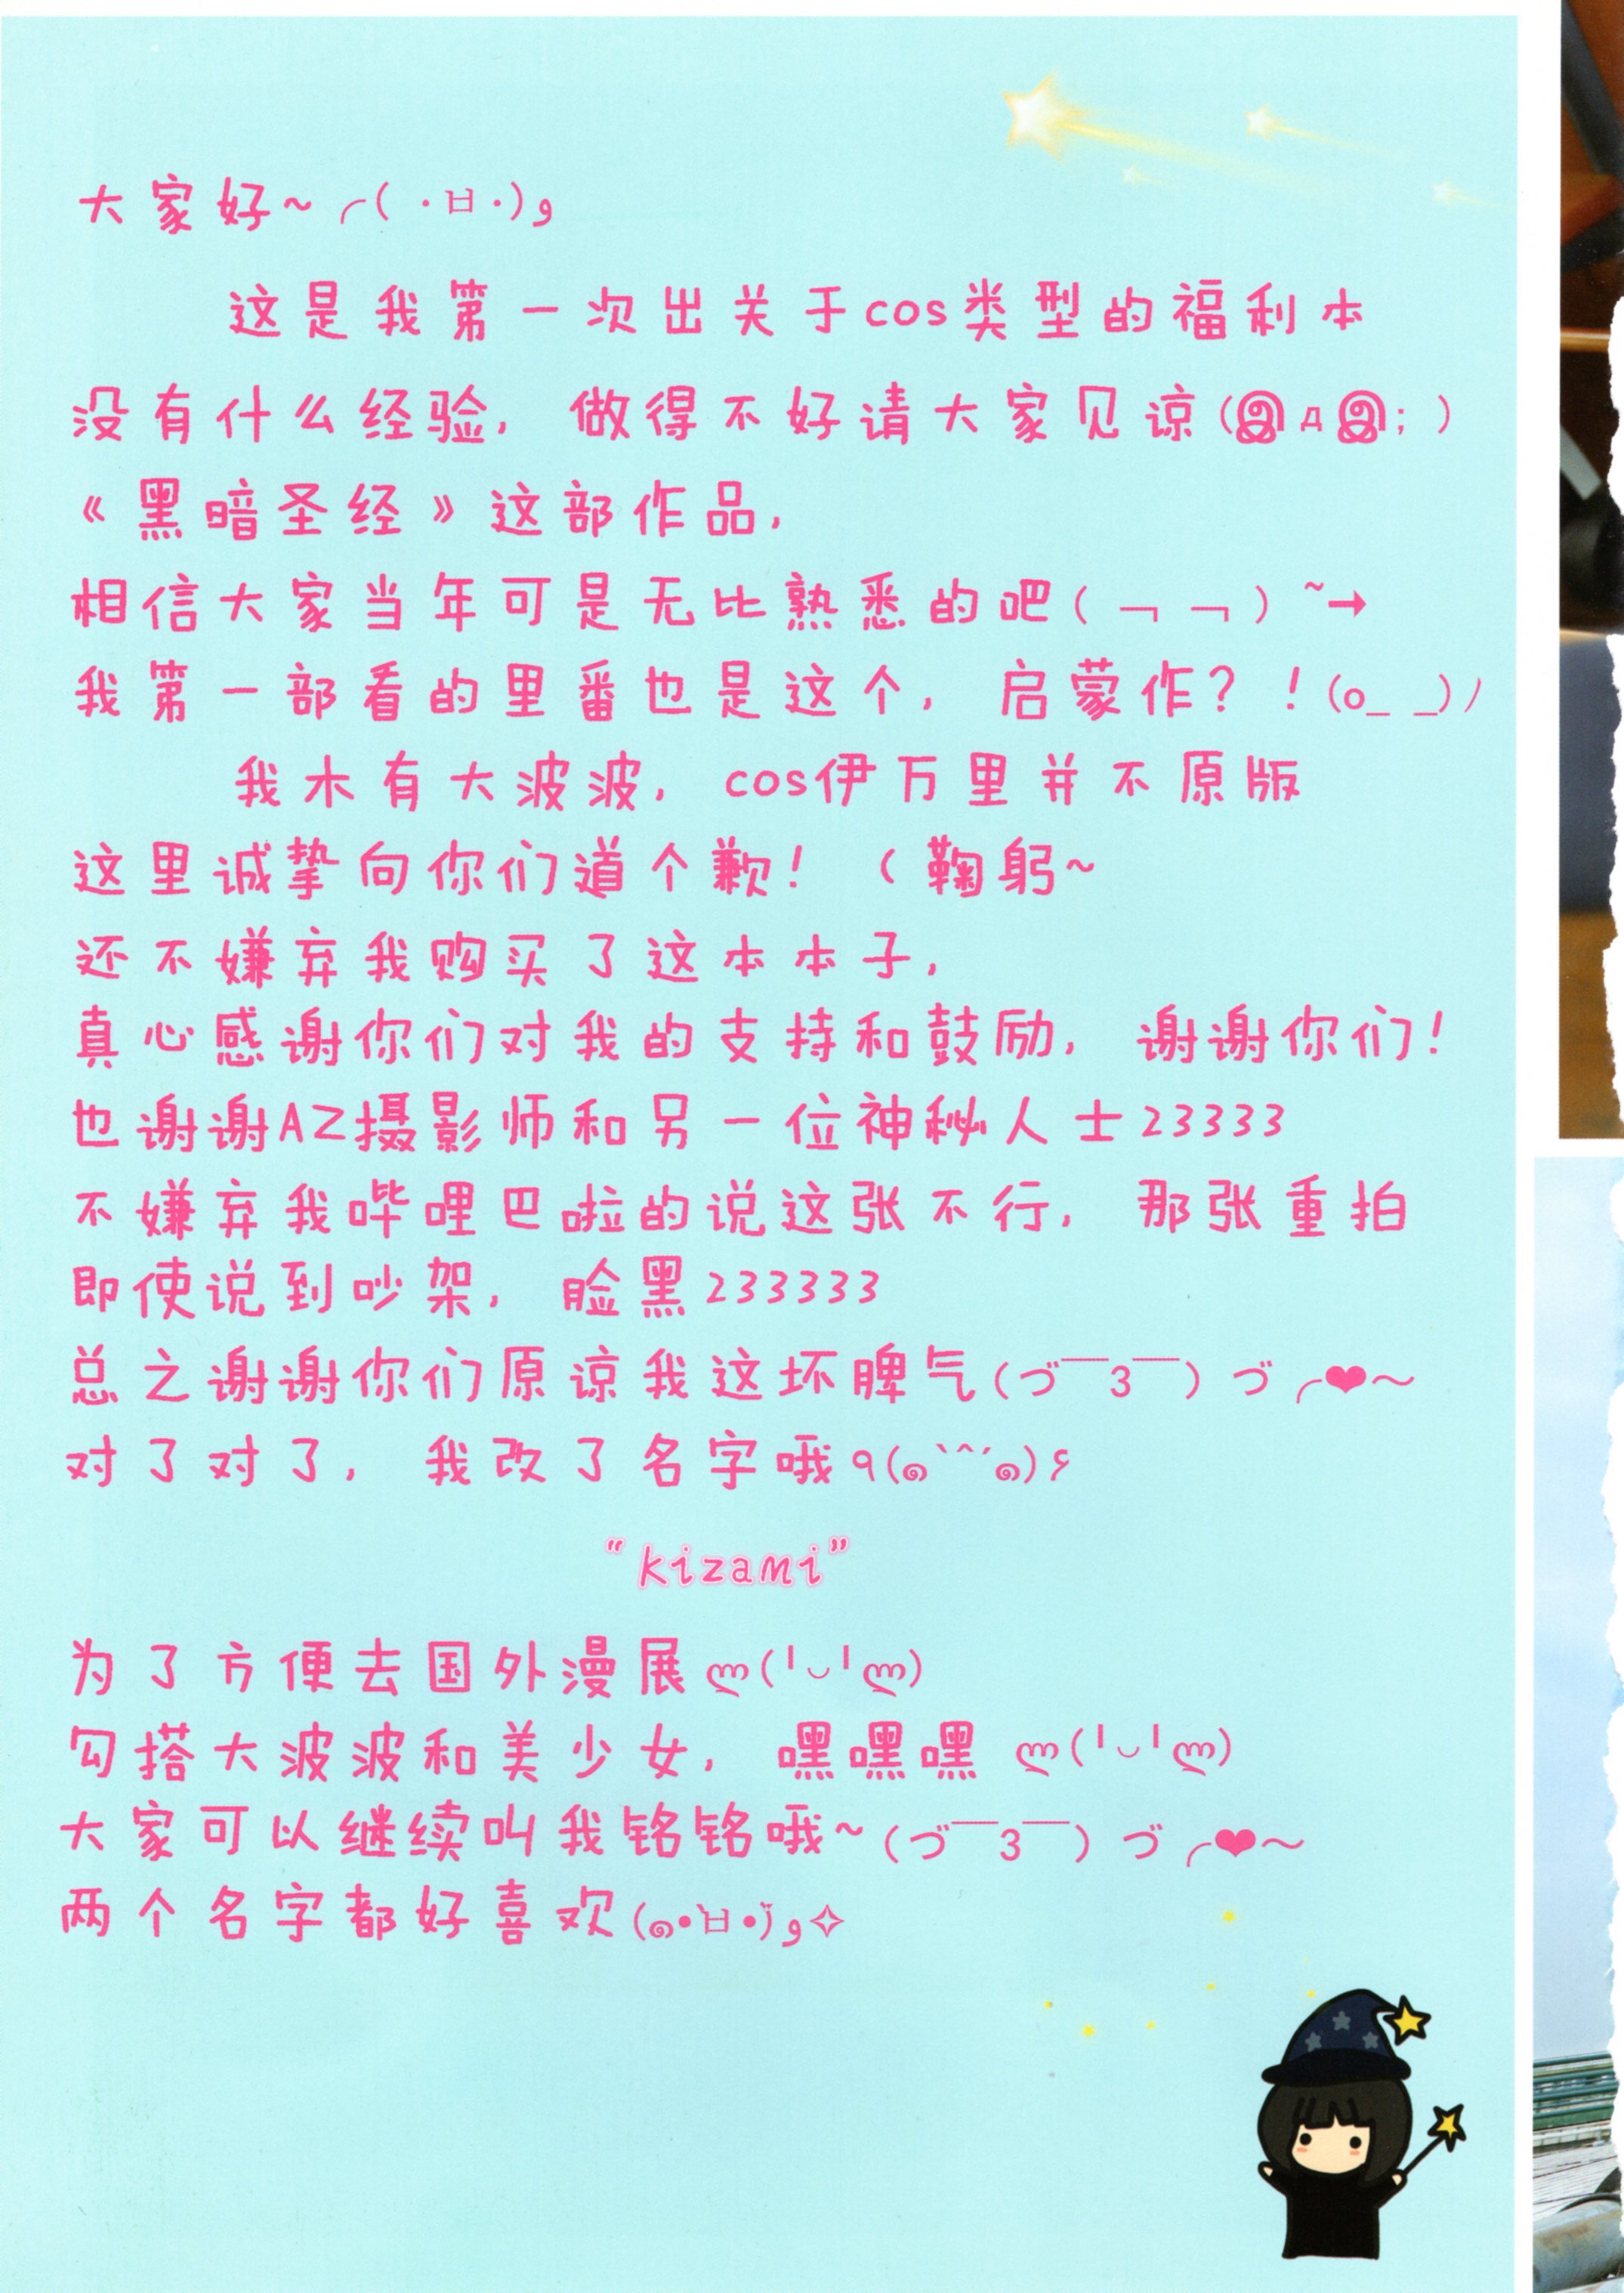 大家好~╭( ･ㅂ･)و
这是我第一次出关于cos类型的福利本
没有什么经验，做得不好请大家见谅(இдஇ; )
《黑暗圣经》这部作品，
相信大家当年可是无比熟悉的吧( ￢ ￢ ) ~→
我第一部看的里番也是这个，启蒙作？！(o_ _)ﾉ
我木有大波波，cos伊万里并不原版
这里诚挚向你们道个歉！（鞠躬~
还不嫌弃我购买了这本本子，
真心感谢你们对我的支持和鼓励，谢谢你们！
也谢谢AZ摄影师和另一位神秘人士23333
不嫌弃我哔哩巴啦的说这张不行，那张重拍
即使说到吵架，脸黑233333
总之谢谢你们原谅我这坏脾气(づ￣3￣）づ╭❤～
对了对了，我改了名字哦٩(๑`^´๑)۶
“kizami”
为了方便去国外漫展ლ(╹◡╹ლ)
勾搭大波波和美少女，嘿嘿嘿 ლ(╹◡╹ლ)
大家可以继续叫我铭铭哦~(づ￣3￣）づ╭❤～
两个名字都好喜欢(๑•̀ㅂ•́)و✧